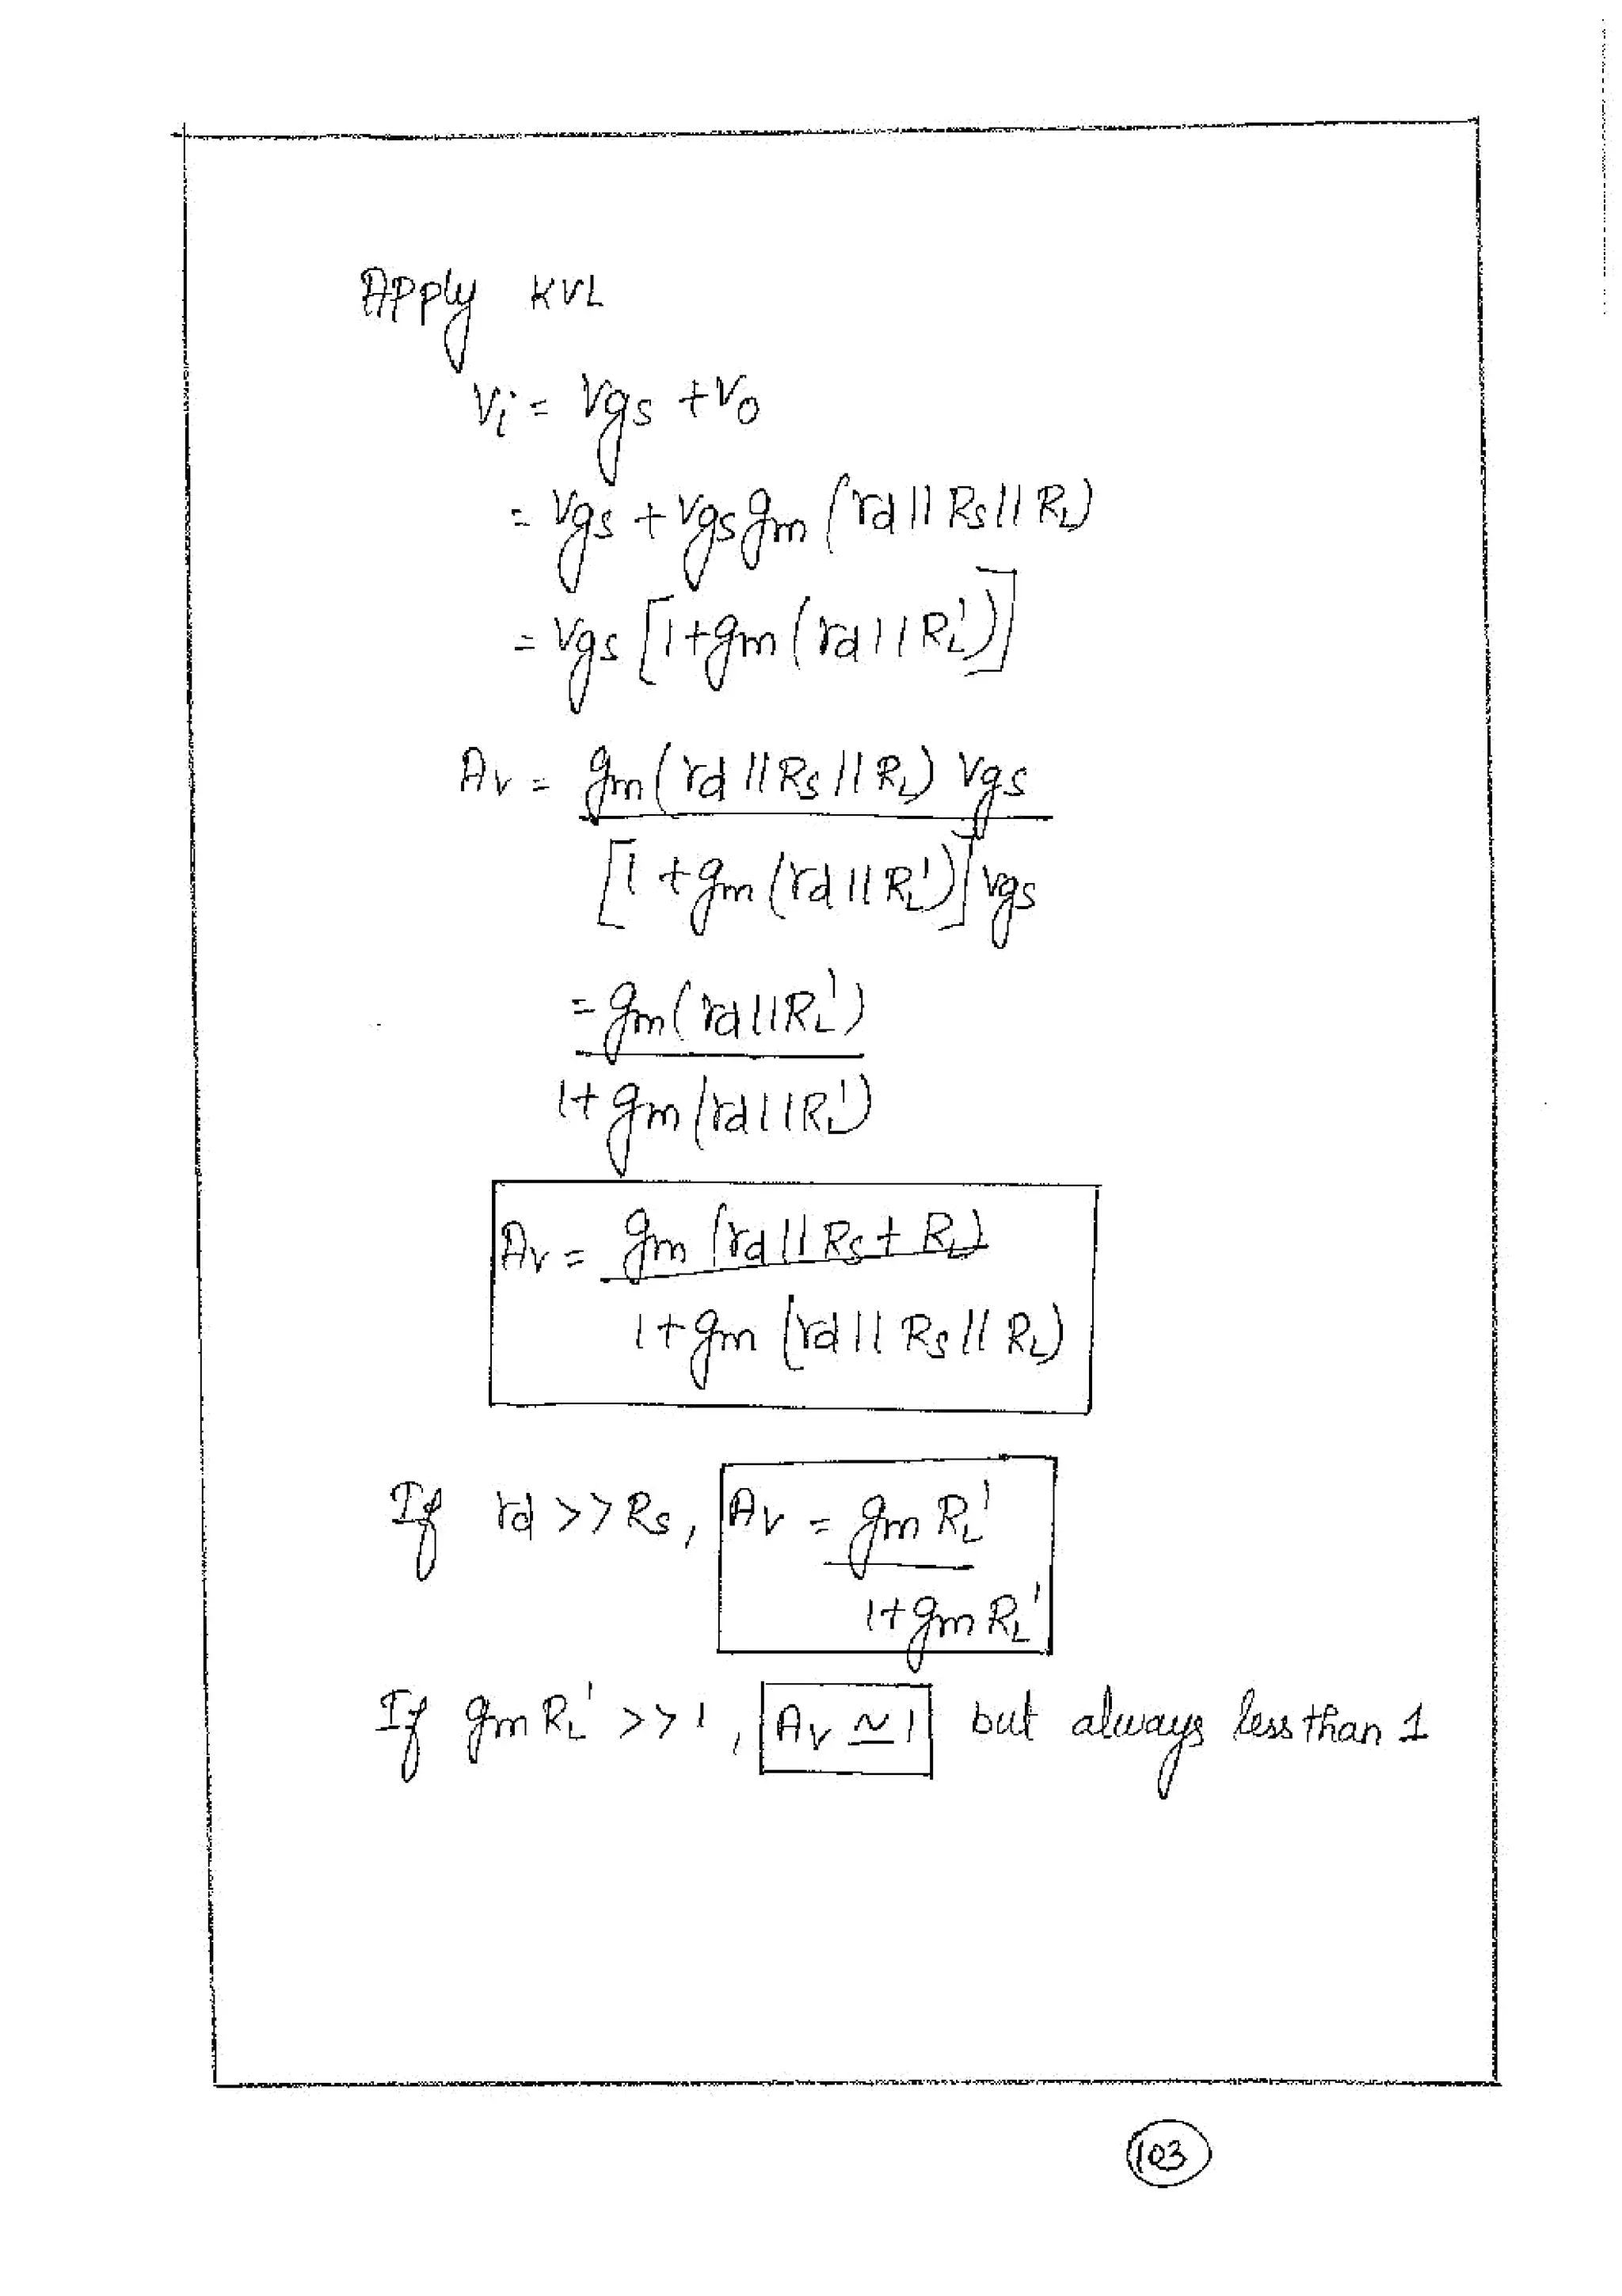 APply KVL
Vi = Vgs + Vo
= Vgs + Vgs gm (rd || Rs || RL)
= Vgs [1+gm (rd || RL')]
Av = gm (rd || Rs || RL) Vgs
[1 + gm (rd || RL')] Vgs
= gm (rd || RL')
1+ gm (rd || RL')
Av = gm (rd || Rs + RL)
1+gm (rd || Rs || RL)
If rd >> Rs, Av = gm RL'
1+gm RL'
If gm RL' >> 1, Av ≃ 1 but always less than 1
103